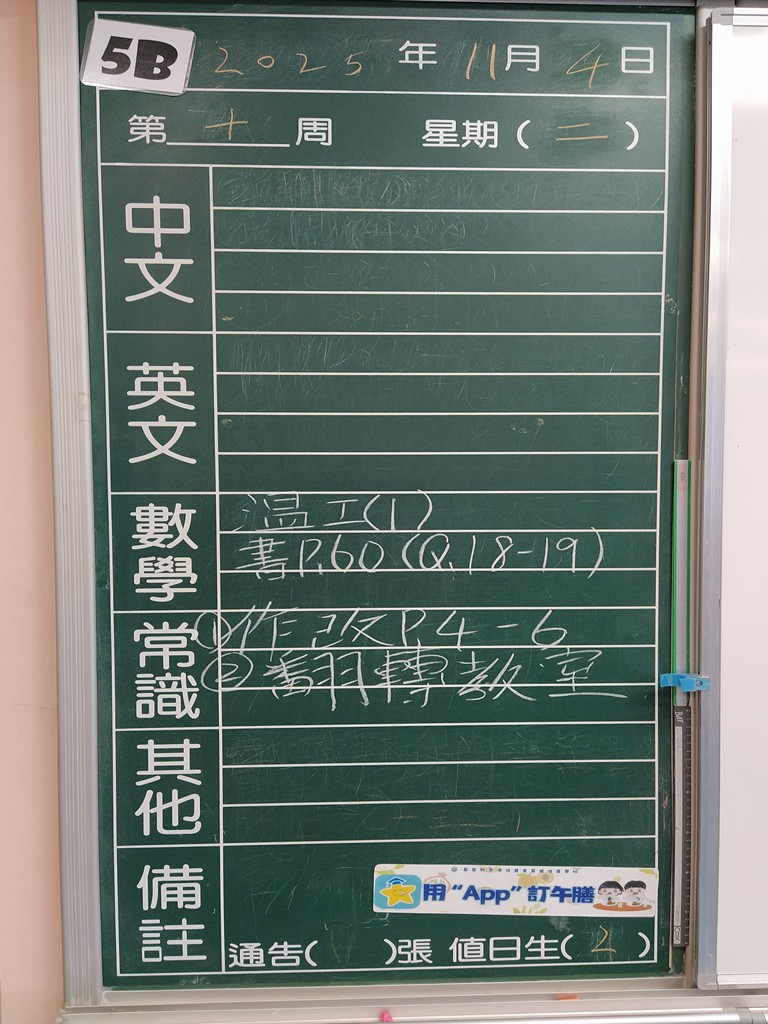 5B 2025年11月4日
第十周 星期(二)
中文
英文
數學
溫工(1)
書P.60(Q.18-19)
常識
①作改P.4-6
②翻轉教室
其他
備註
用“App”訂午膳
通告( )張 值日生(2)